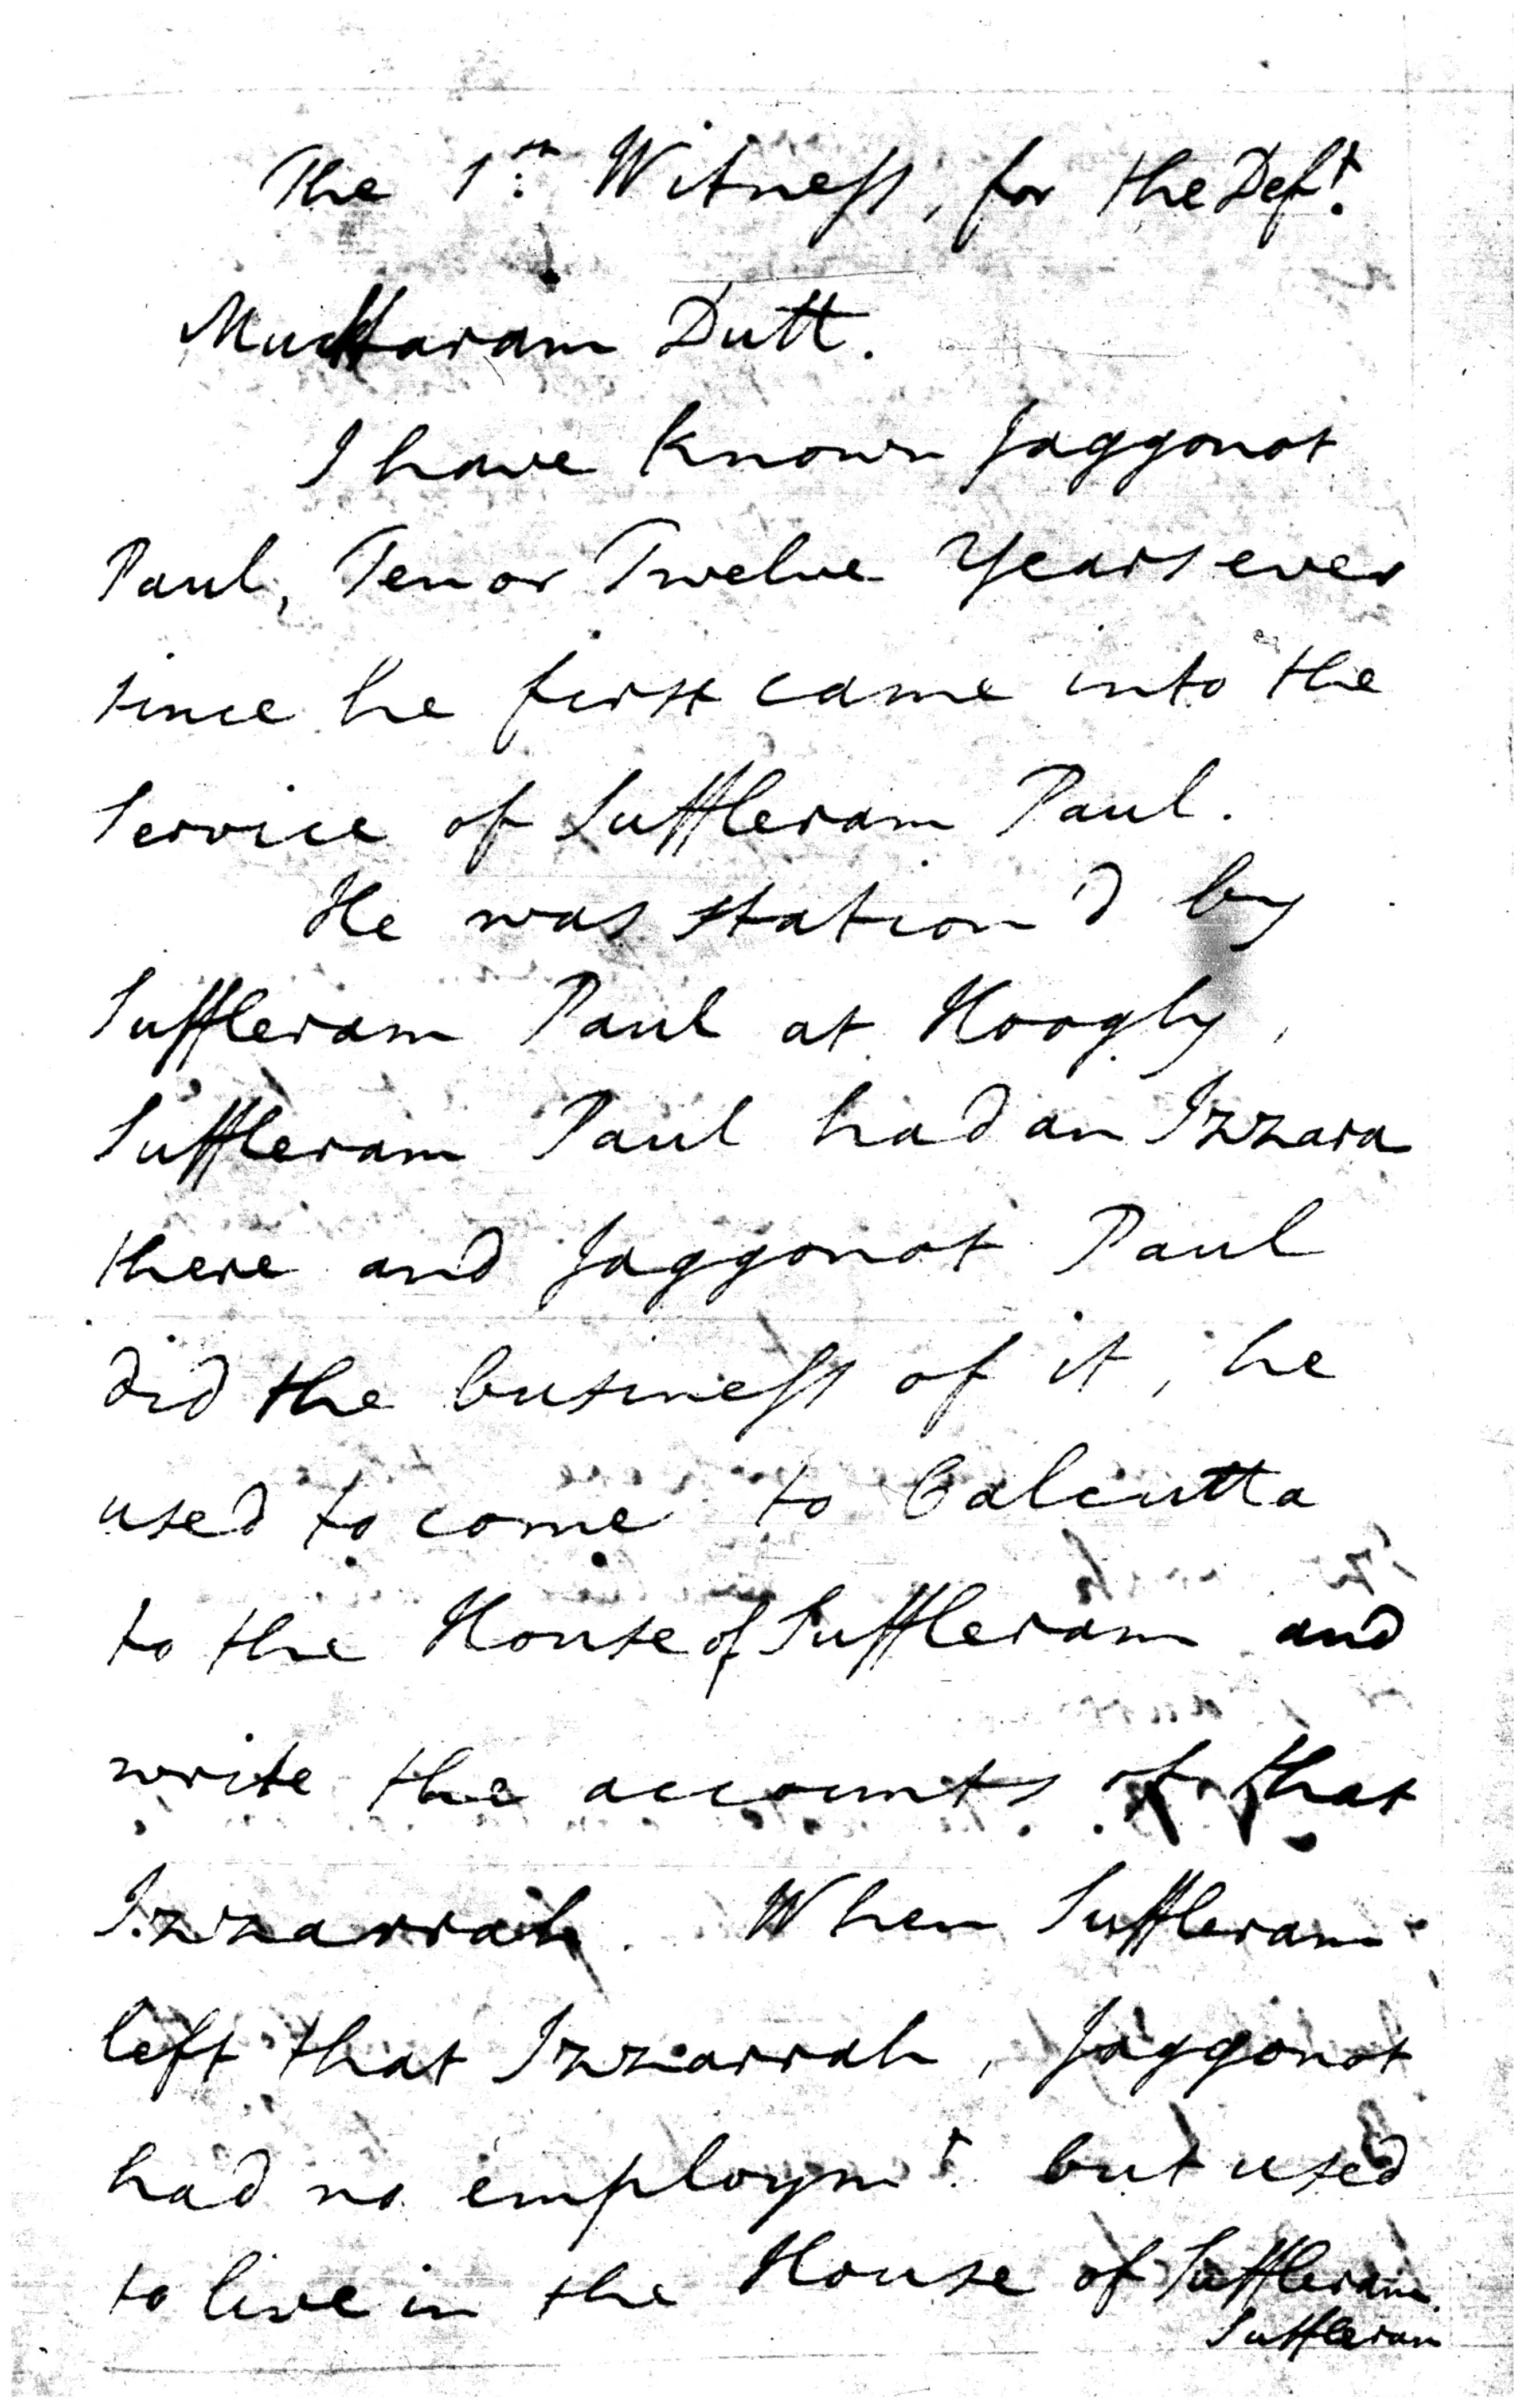 The 1st. Witness, for the Deft.
Mucktaram Dutt.
I have known Jaggonot
Paul, Ten or Twelve Years ever
since he first came into the
Service of Suffleram Paul.
He was station'd by
Suffleram Paul at Hoogly,
Suffleram Paul had an Izzara
there and Jaggonot Paul
did the business of it, he
used to come to Calcutta
to the House of Suffleram and
write the accounts of that
Izzarrah. When Suffleram
left that Izzarrah, Jaggonot
had no employmt. but used
to live in the House of Suffleram.
Suffleram